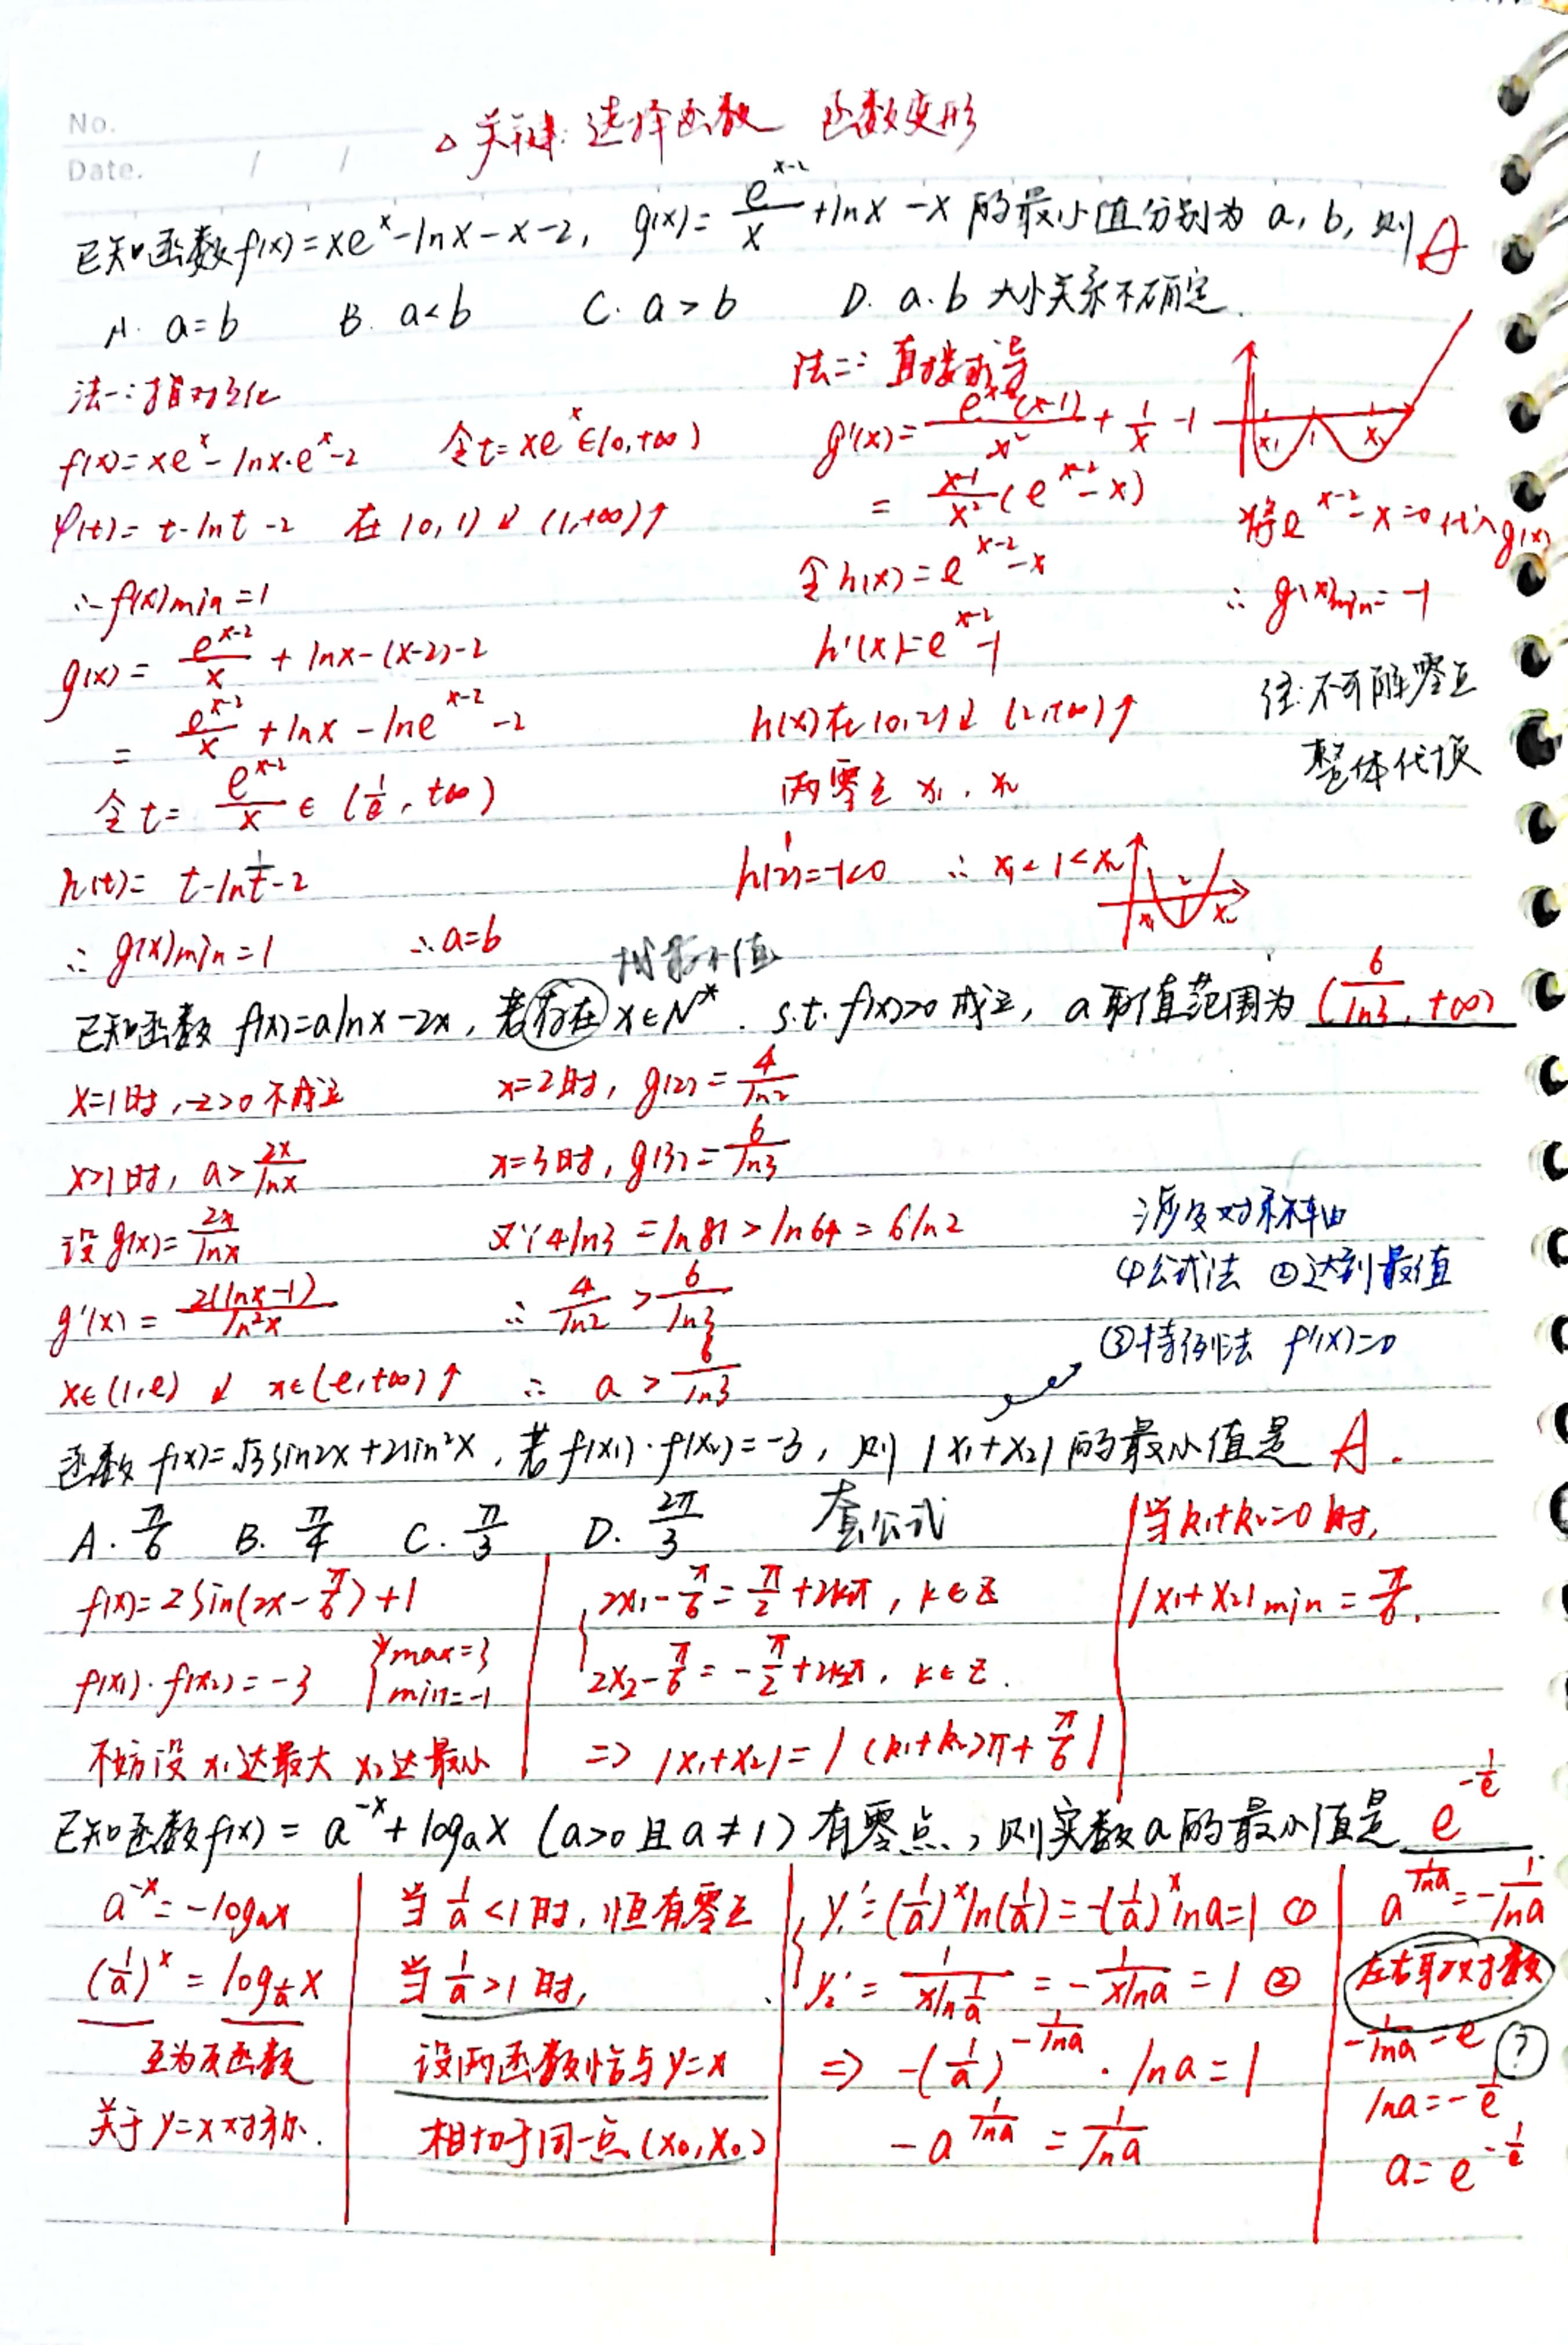 No.
Date. / /
△关键: 选择函数 函数变形
已知函数f(x)=xe^x-lnx-x-2, g(x)=e^(x-2)/x+lnx-x 的最小值分别为 a, b, 则 A
A. a=b B. a<b C. a>b D. a.b 大小关系不确定.
法一: 指对互化
f(x)=xe^x-lnx·e^x-2 令t=xe^x∈(0,+∞)
φ(t)=t-lnt-2 在(0,1)↓ (1,+∞)↑
∴f(x)min=1
g(x)=e^(x-2)/x+lnx-(x-2)-2
=e^(x-2)/x+lnx-lne^(x-2)-2
令t=e^(x-2)/x∈(1/e,+∞)
h(t)=t-lnt-2
∴g(x)min=1 ∴a=b
法二: 直接求导
g'(x)=e^(x-2)(x-1)/x²+1/x-1
=(x-1)/x²(e^(x-2)-x)
令h(x)=e^(x-2)-x
h'(x)=e^(x-2)-1
h(x)在(0,2)↓ (2,+∞)↑
两零点 x₁, x₂
h(2)=-1<0 ∴x₁<1<x₂
x₁ 1 x₂
将e^(x-2)-x=0代入g(x)
∴g(x)min=-1
注:不可解零点
整体代换
x₁ 2 x₂
找最小值
已知函数 f(x)=alnx-2x, 若存在x∈N*. s.t. f(x)>0 成立, a取值范围为 (6/ln3, +∞)
x=1时, -2>0 不成立
x>1时, a>2x/lnx
设g(x)=2x/lnx
g'(x)=2(lnx-1)/ln²x
x∈(1,e)↓ x∈(e,+∞)↑
x=2时, g(2)=4/ln2
x=3时, g(3)=6/ln3
又∵4ln3=ln81>ln64=6ln2
∴4/ln2>6/ln3
∴a>6/ln3
涉及对称轴
①公式法 ②达到最值
③特例法 f'(x)=0
函数f(x)=√3sin2x+2sin²x, 若f(x₁)·f(x₂)=-3, 则|x₁+x₂|的最小值是 A.
A. π/6 B. π/4 C. π/3 D. 2π/3 套公式
f(x)=2sin(2x-π/6)+1
f(x₁)·f(x₂)=-3 {max=3 min=-1
不妨设 x₁达最大 x₂达最小
{2x₁-π/6=π/2+2k₁π, k∈Z
2x₂-π/6=-π/2+2k₂π, k∈Z.
=>|x₁+x₂|=|(k₁+k₂)π+π/6|
当k₁+k₂=0时,
|x₁+x₂|min=π/6.
已知函数f(x)=a^(-x)+logₐx (a>0且a≠1)有零点, 则实数a的最小值是 e^(-1/e)
a^(-x)=-logₐx
(1/a)^x=log_(1/a)x
互为反函数
关于y=x对称.
当1/a<1时, 恒有零点
当1/a>1时,
设两函数恰与y=x
相切于同一点(x₀,x₀)
{y₁'=(1/a)^x ln(1/a)=-(1/a)^x lna=1 ①
y₂'=1/(xln(1/a))=-1/(xlna)=1 ②
=>-(1/a)^(-1/lna)·lna=1
-a^(1/lna)=1/lna
a^(1/lna)=-1/lna
左右取对数
-1/lna=e ?
lna=-1/e
a=e^(-1/e)